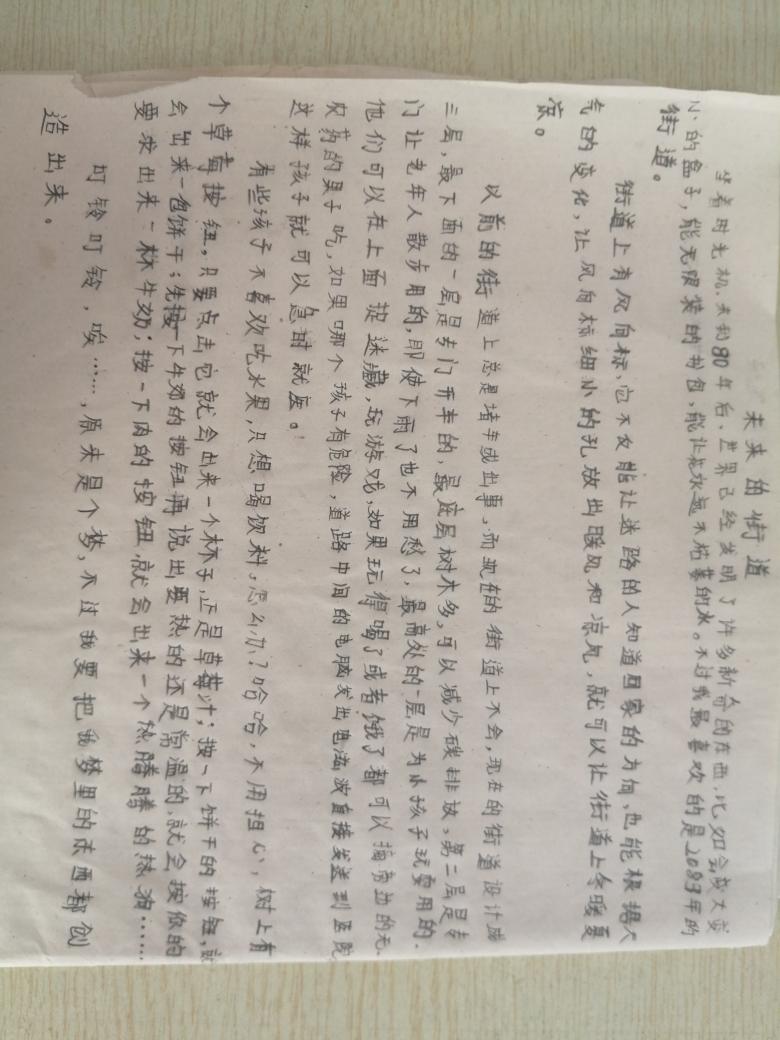 未来的街道
坐着时光机,来到80年后,世界已经发明了许多新奇的东西,比如会变大变
小的盒子,能无限装的书包,能让花永远不枯萎的水。不过我最喜欢的是2093年的
街道。
街道上有风向标,它不仅能让迷路的人知道回家的方向,也能根据天
气的变化,让风向标细小的孔放出暖风和凉风,就可以让街道上冬暖夏
凉。
以前的街道上总是堵车或出事,而现在的街道上不会,现在的街道设计成
三层,最下面的一层是专门开车的,最底层树木多,可以减少碳排放,第二层是专
门让老年人散步用的,即使下雨了也不用愁了,最高处的一层是为小孩子玩耍用的.
他们可以在上面捉迷藏,玩游戏,如果玩得喝了或者饿了都可以摘旁边的无
农药的果子吃,如果哪个孩子有危险,道路中间的电脑发出电磁波直接发送到医院
这样孩子就可以急时就医。
有些孩子不喜欢吃水果,只想喝饮料,怎么办?哈哈,不用担心,树上有
个草莓按钮,只要点击它就会出来一个杯子,正是草莓汁;按一下饼干的按钮,就
会出来一包饼干;先按一下牛奶的按钮再说出要热的还是常温的,就会按你的
要求出来一杯牛奶;按一下肉的按钮,就会出来一个热腾腾的热狗……
叮铃叮铃,唉……,原来是个梦,不过我要把我梦里的东西都创
造出来。